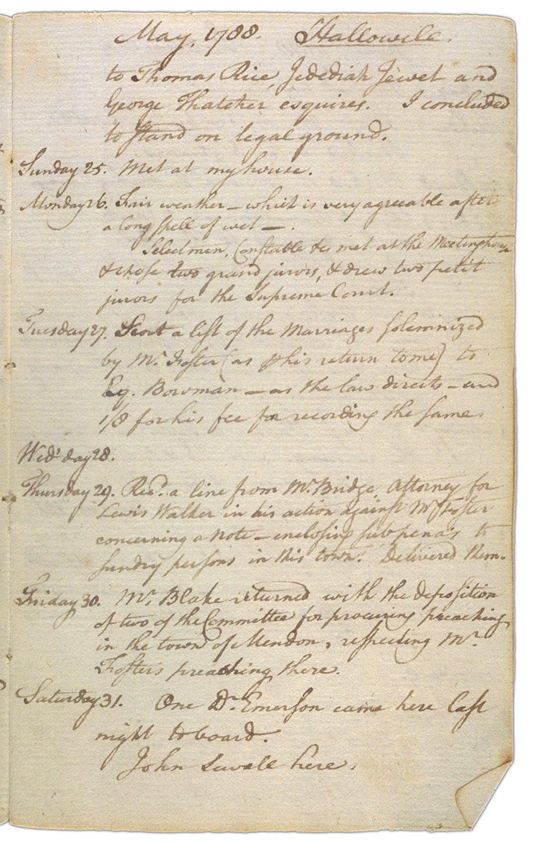 May, 1788. Hallowell.
to Thomas Rice Jedediah Jewet and
George Thatcher esquires. I concluded
to stand on legal ground.
Sunday 25. Met at my house.
Monday 26. Fair weather – which is very agreeable after
a long spell of wet –.
Selectmen, Constable &c met at the Meetinghouse
& chose two grand jurors, & drew two petit
jurors for the Supreme Court.
Tuesday 27. Sent a list of the Marriages solemnized
by Mr. Foster (as pr his return to me) to
Esq. Bowman – as the law directs – and
1/8 for his fee for recording the same
Wedsday 28.
Thursday 29. Recd. a line from Mr. Bridge Attorney for
Lewis Walker in his action against Mr. Foster
concerning a note – enclosing subpena's to
sundry persons in this town. Delivered them.
Friday 30. Mr. Blake returned with the deposition
of two of the Committee for procuring preaching
in the town of Mendon, respecting Mr.
Foster's preaching there.
Saturday 31. One Dr. Emerson came here last
night to board.
John Sewall here.